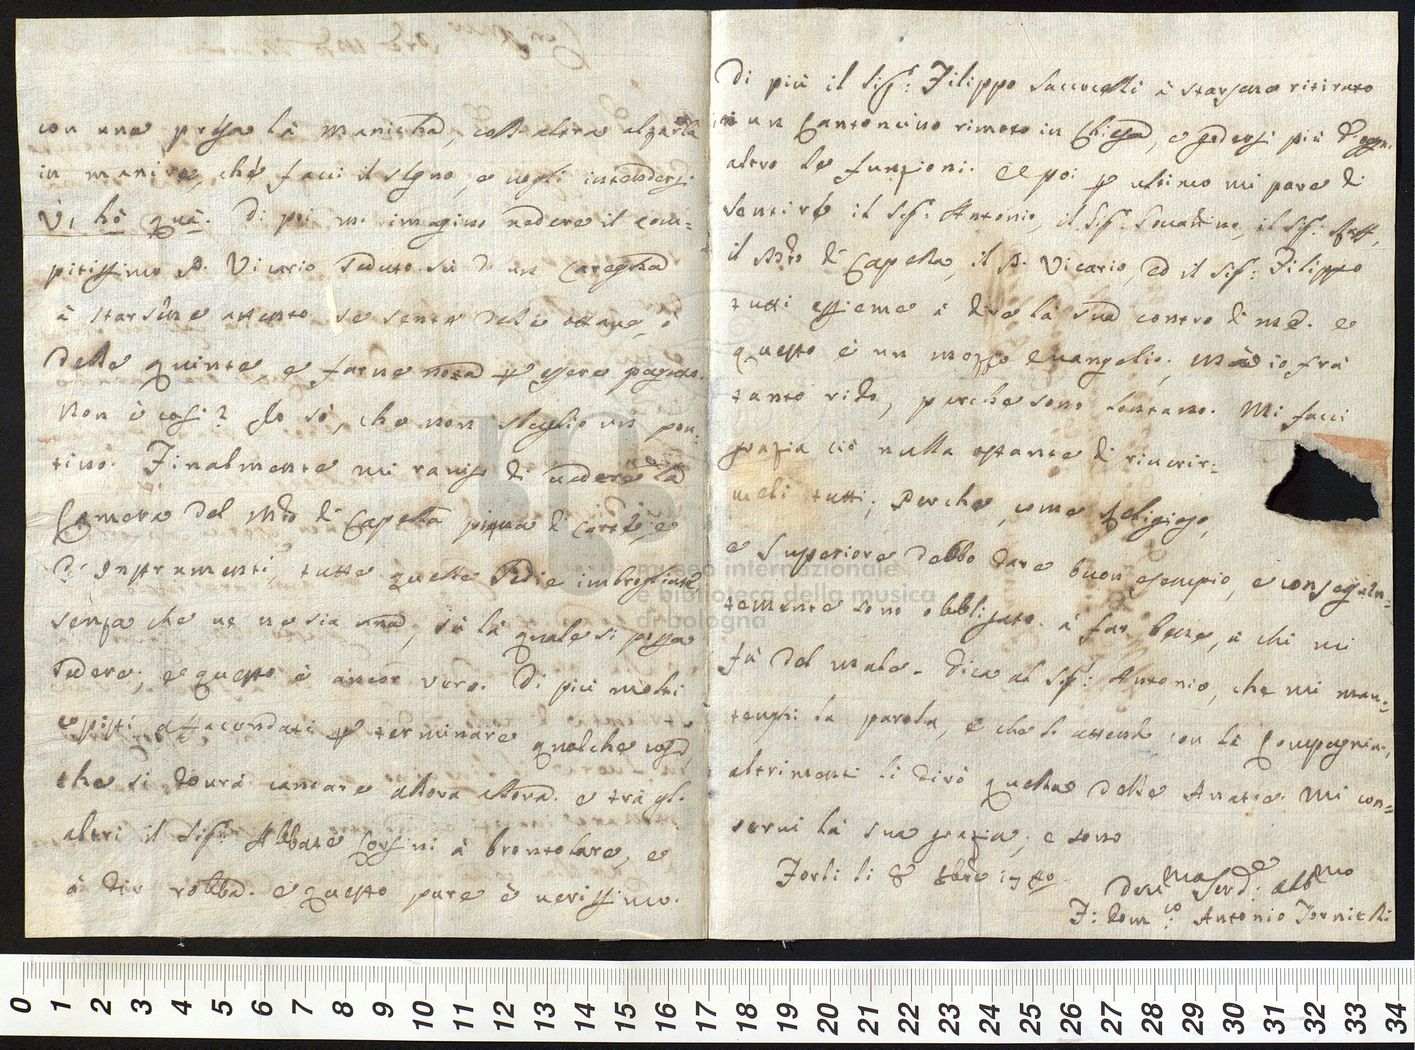 con una presa la manicha, coll'altra alzarla
in maniera, ché facci il segno, e vogli intendersi.
Vi hò quà. Di poi m' imagino vedere il com-
pitissimo P. Vicario seduto sù d'un Caregha
à starsene attento se sente delle ottave, ò
delle quinte, e farne nota p essere
Non è così? Io sò, che non sbaglio un pon-
tino. Finalmente mi raviso di vedere la
Camera del Mro di Capella piena di carte, e
d'Instrumenti, tutte quelle sedie imbrogliate
senza che ve ne sia una, sù la quale si possa
sedere; e questo è ancor vero. Di più molti
copisti affacendati p terminare qualche cosa,
che si dovrà cantare allora allora. e trà gl'
altri il Sigr: Abbate Corsini à brontolare, e
à dir robba. e questo pure è verissimo.
Di più il Sigr: Filippo Saccocelli à starsene ritirato
in un Cantoncino rimoto in Chiesa, e godersi più d'ogn'
altro le funzioni. E poi p ultimo mi pare di
sentire il Sigr: Antonio, il Sigr: il Sigr:
il Mro di Capella, il P. Vicario, ed il Sigr: Filippo
tutti assieme à dire la sua contro di me. e
questo è un mezzo evangelio; mà io frà
tanto rido, perche sono lontano. Mi facci
grazia ciò nulla ostante di riverir-
meli tutti; perche, come Religioso,
e Superiore debbo dare buon esempio, e conseguen-
temente sono obbligato à far bene, à chi mi
fà del male. Dica al Sigr: Antonio, che mi man-
tenghi la parola, e che lo attendo con la Compagnia,
altrimenti li dirò quella delle Anatre. Mi con-
servi la sua grazia, e sono
Forlì li 8 17
Devma Serd: Obbmo
F: Domco: Antonio
museo internazionale
e biblioteca della musica
di bologna
0 1 2 3 4 5 6 7 8 9 10 11 12 13 14 15 16 17 18 19 20 21 22 23 24 25 26 27 28 29 30 31 32 33 34